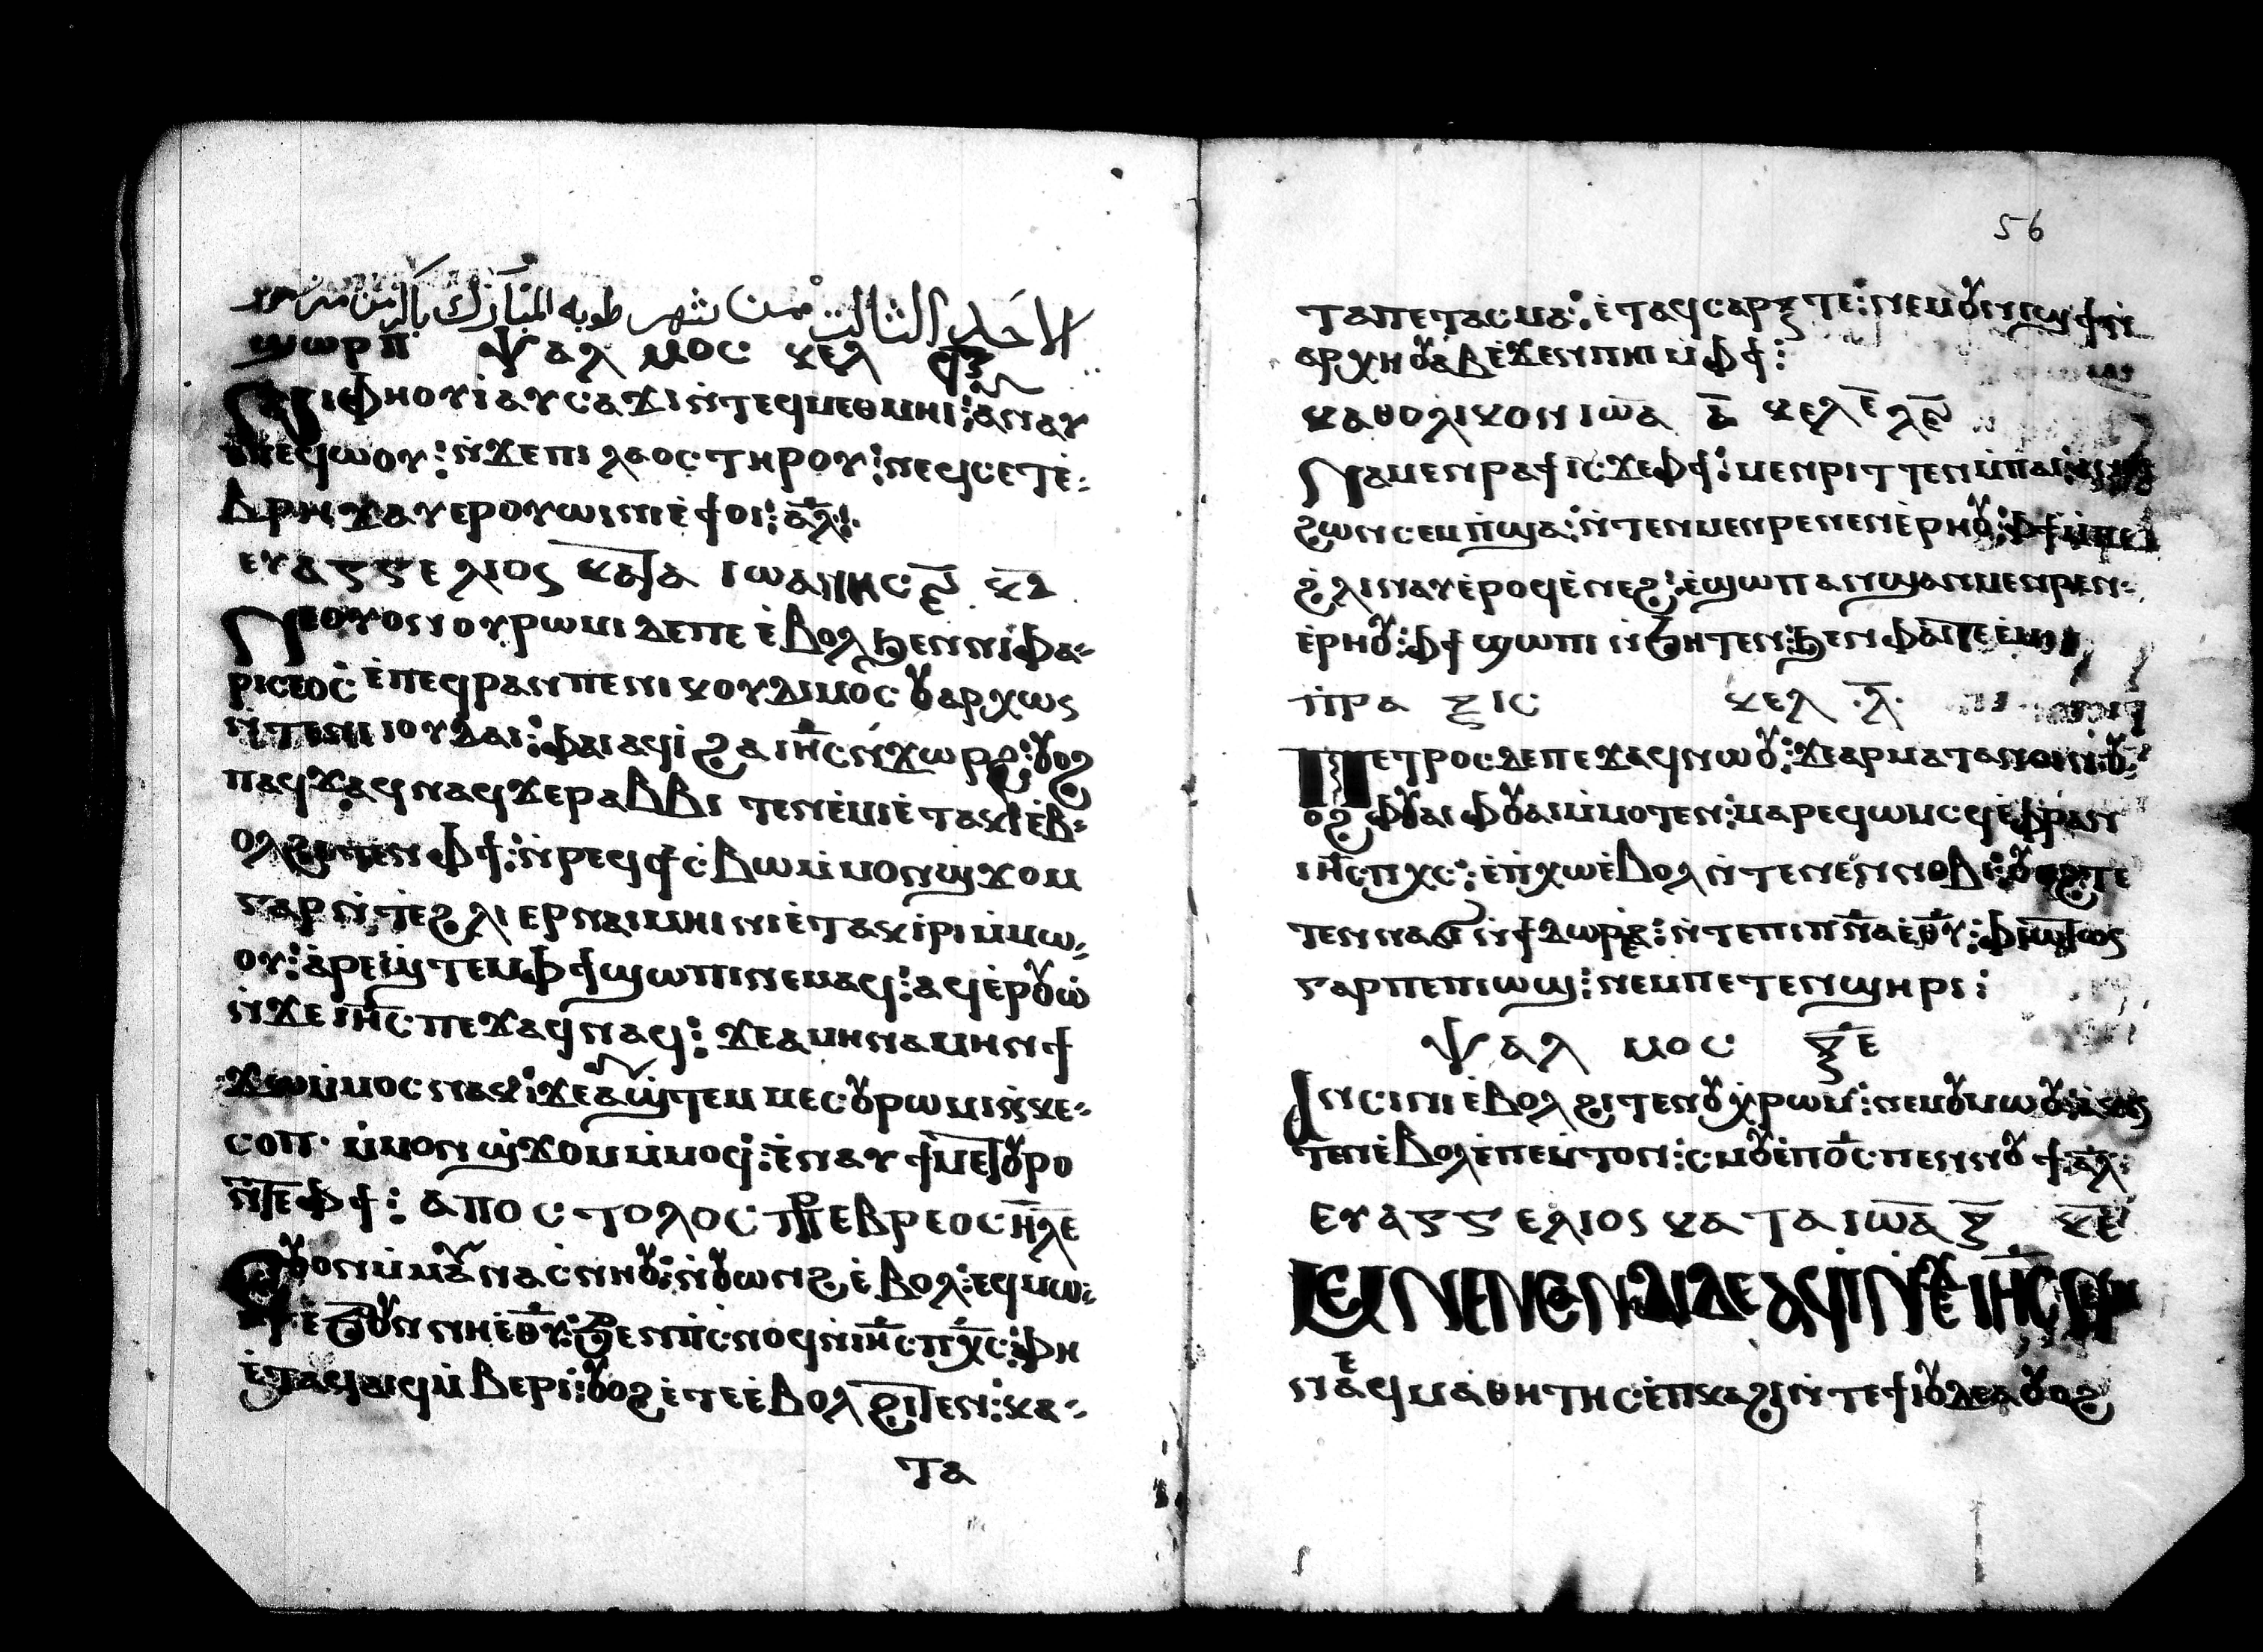 الاحد الثالت من شهر طوبه المبارك باكر من مزمور
ϣⲱⲣⲡ ⲯⲁⲗⲙⲟⲥ ⲕⲉⲗ
ⲛⲓⲫⲏⲟⲩⲓ̀ⲁⲩⲥⲁϫⲓⲛ̀ⲧⲉϥⲙⲉⲑⲙⲏⲓ: ⲁⲛⲁⲩ
ⲡⲉϥⲱⲟⲩ: ⲛ̀ϫⲉⲡⲓⲗⲁⲟⲥⲧⲏⲣⲟⲩ: ⲛⲉϥⲥⲉⲧⲉ̀
ⲃⲣⲏϫⲁⲩⲉⲣⲟⲩⲱⲓⲛⲓⲉ̀ϯⲟⲓ: ⲁ̅ⲗ̅:
ⲉⲩⲁⲅⲅⲉⲗⲓⲟⲥ ⲕⲁⲧⲁ ⲓⲱⲁⲛⲛⲏⲥ ⲕ̅ⲇ̅
ⲛⲉⲟⲩⲟⲛⲟⲩⲣⲱⲙⲓ ⲇⲉⲡⲉ ⲉ̀ⲃⲟⲗϧⲉⲛⲛⲓⲫⲁ-
ⲣⲓⲥⲉⲟⲥ ⲉ̀ⲡⲉϥⲣⲁⲛⲡⲉⲛⲓⲕⲟⲩⲇⲓⲙⲟⲥ ⲟⲩⲁⲣⲭⲱⲥ
ⲛ̀ⲧⲉⲛⲓⲓⲟⲩⲇⲁⲓ: ⲫⲁⲓⲁϥⲓ̀ϩⲁⲓⲏ̅ⲥ̅ⲛ̀ϫⲱⲣϩ: ⲟⲩⲟϩ
ⲡⲁϥϫⲁϥⲛⲁϥϫⲉⲣⲁⲃⲃⲓ ⲧⲉⲛⲉ̀ⲙⲓⲉ̀ⲧⲁⲕⲓ̀ⲉ̀ⲃ-
ⲟⲗϩⲓⲧⲉⲛ ⲫϯ: ⲛ̀ⲣⲉϥϯⲥ̀ⲃⲱⲙ̀ⲙⲟⲛϣϫⲟⲙ
ⲅⲁⲣⲛ̀ⲧⲉϩⲗⲓ ⲉⲣⲛⲁⲓⲙⲏⲓⲛⲓⲉ̀ⲧⲁⲕⲓ̀ⲣⲓⲙ̀ⲙⲱ-
ⲟⲩ: ⲁ̀ⲣⲉϣⲧⲉⲙⲫϯϣⲱⲡⲓⲛⲉⲙⲁϥ: ⲁϥⲉ̀ⲣⲟⲩⲱ̀
ⲛ̀ϫⲉⲓⲏ̅ⲥ̅ⲡⲉϫⲁϥⲛⲁϥ: ϫⲉⲁⲙⲏⲛⲁⲙⲏⲛϯ
ϫⲱⲙ̀ⲙⲟⲥⲛⲁⲕ: ϫⲉⲁϣ̀ⲧⲉⲙ ⲙⲉⲥⲟⲩⲣⲱⲙⲓⲛ̀ⲕⲉ-
ⲥⲟⲡ ⲙ̀ⲙⲟⲛϣ̀ϫⲟⲙⲙ̀ⲙⲟϥ: ⲉ̀ⲛⲁⲩ ϯⲙⲉⲧⲟⲩⲣⲟ
ⲛ̀ⲧⲉⲫϯ: ⲁⲡⲟⲥⲧⲟⲗⲟⲥ ⲉⲃⲣⲉⲟⲥ ⲏ̅ ⲗ̅ⲉ̅
ⲟⲩⲟⲛⲙ̀ⲙⲁⲛⲛⲁⲥ̀ⲛⲏⲟⲩ: ⲛ̀ⲟⲩⲱⲛϩ ⲉ̀ⲃⲟⲗ: ⲉϥⲙⲱ-
ⲉ̀ϧⲟⲩⲛ ⲛⲏⲉ̀ⲑ̅ⲩ̅: ϧⲉⲛⲡⲓⲥ̀ⲛⲟϥⲛ̀ⲓⲏ̅ⲥ̅ⲡ̅ⲭ̅ⲥ̅: ⲫⲏ
ⲉ̀ⲧⲁϥⲁⲓϥⲙ̀ⲃⲉⲣⲓ: ⲟⲩⲟϩ ⲉ̀ⲧⲉⲉ̀ⲃⲟⲗ ϩⲓⲧⲉⲛ: ⲕⲁ-
ⲧⲁ
56
ⲧⲁⲡⲉⲧⲁⲥⲙⲁ: ⲉ̀ⲧⲁϥⲥⲁⲣⲝ ⲧⲉ: ⲛⲉⲙⲟⲩⲛⲓϣϯⲛ̀
ⲁⲣⲭⲏⲟⲩⲁⲃ ⲉ̀ϫⲉⲛⲡⲏⲓ ⲙ̀ⲫϯ:
ⲕⲁⲑⲟⲗⲓⲕⲟⲛ ⲓⲱ̅ⲁ̅ ⲁ̅ ⲕⲉⲗⲉ
ⲛⲁⲙⲉⲛⲣⲁϯⲓⲥϫⲉⲫϯ: ⲙⲉⲛⲣⲓⲧⲧⲉⲛⲙ̀ⲡⲁⲓ
ϩⲱⲛⲥⲉⲙ̀ⲡϣⲁ: ⲛ̀ⲧⲉⲛⲙⲉⲛⲣⲉⲛⲉⲛⲉ̀ⲣⲏⲟⲩ: ⲫϯⲙ̀ⲡⲉ
ϩ̀ⲗⲓⲛⲁⲩⲉ̀ⲣⲟϥⲉ̀ⲛⲉϩ: ⲉ̀ϣⲱⲡ ⲁⲛϣⲁⲛⲙⲉⲛⲣⲉⲛ-
ⲉ̀ⲣⲏⲟⲩ: ⲫϯ ϣⲱⲡⲓ ⲛ̀ϧⲏⲧⲉⲛ: ϧⲉⲛ ⲫⲁⲓⲧⲉⲛⲉ̀ⲙⲓ
ⲡ̀ⲣⲁⲝⲓⲥ ⲕⲉⲗ ⲗ̅
ⲡⲉⲧⲣⲟⲥⲇⲉⲡⲉϫⲁϥⲛⲱⲟⲩ: ϫⲉⲁⲣⲙⲁⲧⲁⲛⲟⲓⲛ: ⲟⲩ-
ⲟϩ ⲫⲟⲩⲁⲓ ⲫⲟⲩⲁⲓⲙ̀ⲙⲟⲧⲉⲛ: ⲙⲁⲣⲉϥⲱⲙⲥϥⲉ̀ⲫⲣⲁⲛ
ⲓⲏ̅ⲥ̅ⲡ̅ⲭ̅ⲥ̅: ⲉ̀ⲡ̀ⲭⲱⲉ̀ⲃⲟⲗ ⲛ̀ⲧⲉⲛⲉⲛⲛⲟⲃⲓ: ⲟⲩⲟϩⲧⲉ
ⲧⲉⲛⲛⲁϭⲓⲛ̀ϯⲇⲱⲣⲉⲁ: ⲛ̀ⲧⲉⲡⲓⲡ̅ⲛ̅ⲁ̅ⲉ̅ⲑ̅ⲩ̅: ⲫⲉⲛⲱⲥ
ⲅⲁⲣⲡⲉⲡⲓⲱϣ: ⲛⲉⲙⲡⲉⲧⲉⲛϣⲏⲣⲓ:
ⲯⲁⲗⲙⲟⲥ ⲝ̅ⲉ̅
ⲁⲛⲥⲓⲛⲓ ⲉ̀ⲃⲟⲗ ϩⲓⲧⲉⲛⲟⲩⲭ̀ⲣⲱⲙ: ⲛⲉⲙⲟⲩⲙⲱⲟⲩ
ⲧⲉⲛⲉ̀ⲃⲟⲗⲉ̀ⲡⲉⲙ̀ⲧⲟⲛ: ⲥⲙⲟⲩⲉ̀ⲡⲟ̅ⲥ̅ⲡⲉⲛⲛⲟⲩϯ ⲁ̅ⲗ̅:
ⲉⲩⲁⲅⲅⲉⲗⲓⲟⲥ ⲕⲁⲧⲁ ⲓⲱ̅ⲁ̅ ⲅ̅ ⲕ̅ⲉ̅
ⲙⲉⲛⲉⲛⲥⲁⲛⲁⲓ ⲇⲉ ⲁϥⲓ̀ ⲛ̀ϫⲉ ⲓⲏ̅ⲥ̅ ⲛⲉⲙ
ⲛⲉϥⲙⲁⲑⲏⲧⲏⲥⲉ̀ⲡⲕⲁϩⲓⲛ̀ⲧⲉϯⲓⲟⲩⲇⲉⲁⲟⲩⲟϩ